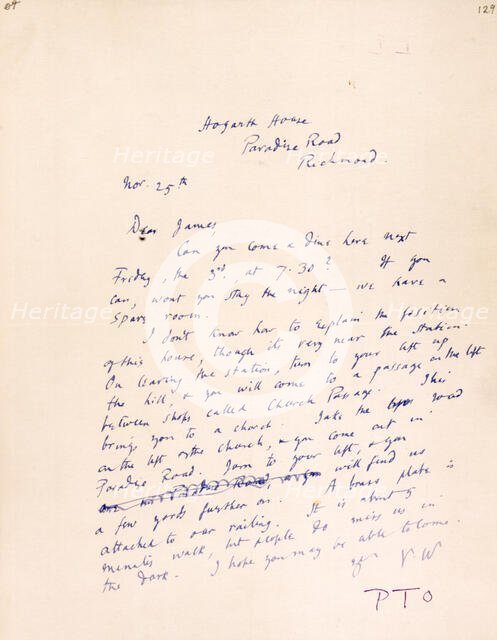 89
129
Hogarth House
Paradise Road
Richmond.
Nov. 25th
Dear James,
Can you come & dine here next
Friday, the 3rd, at 7.30? If you
can, wont you stay the night – we have a
spare room.
I don't know how to explain the position
of this house, though its very near the station.
On leaving the station, turn to your left up
the hill, & you will come to a passage on the left
between shops called Church Passage. This
brings you to a church. Take the road
on the left of the church, & you come out in
Paradise Road. Turn to your left, & you
will find us
a few yards further on. A brass plate is
attached to our railing. It is about 5
minutes walk, but people do miss us in
the dark. I hope you may be able to come.
V W
PTO
Heritage Heritage Heritage
Heritage Heritage Heritage
Heritage Heritage Heritage